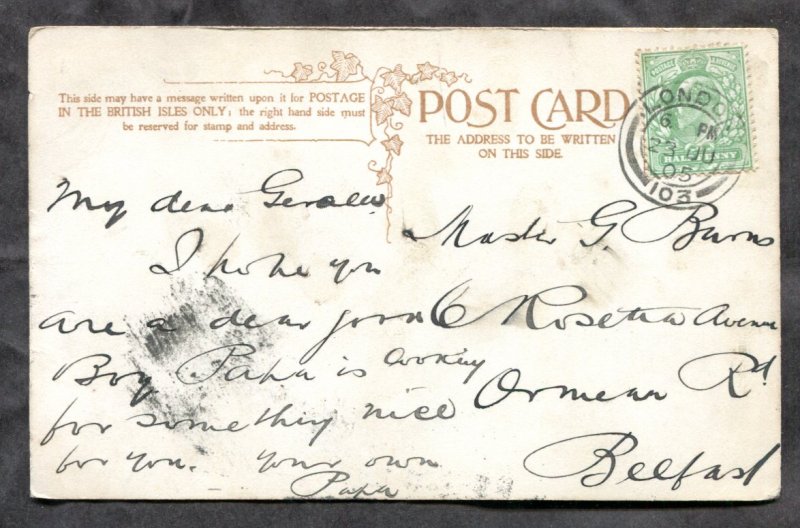 This side may have a message written upon it for POSTAGE
IN THE BRITISH ISLES ONLY; the right hand side must
be reserved for stamp and address.
POST CARD
THE ADDRESS TO BE WRITTEN
ON THIS SIDE.
LONDON
6 PM
23 JU
05
103
POSTAGE
HALFPENNY
My dear Gerald
I hope you
are a dear good
Boy Papa is looking
for something nice
for you. Your own
Papa
Master G. Burns
6 Rosetta Avenue
Ormeau Rd
Belfast